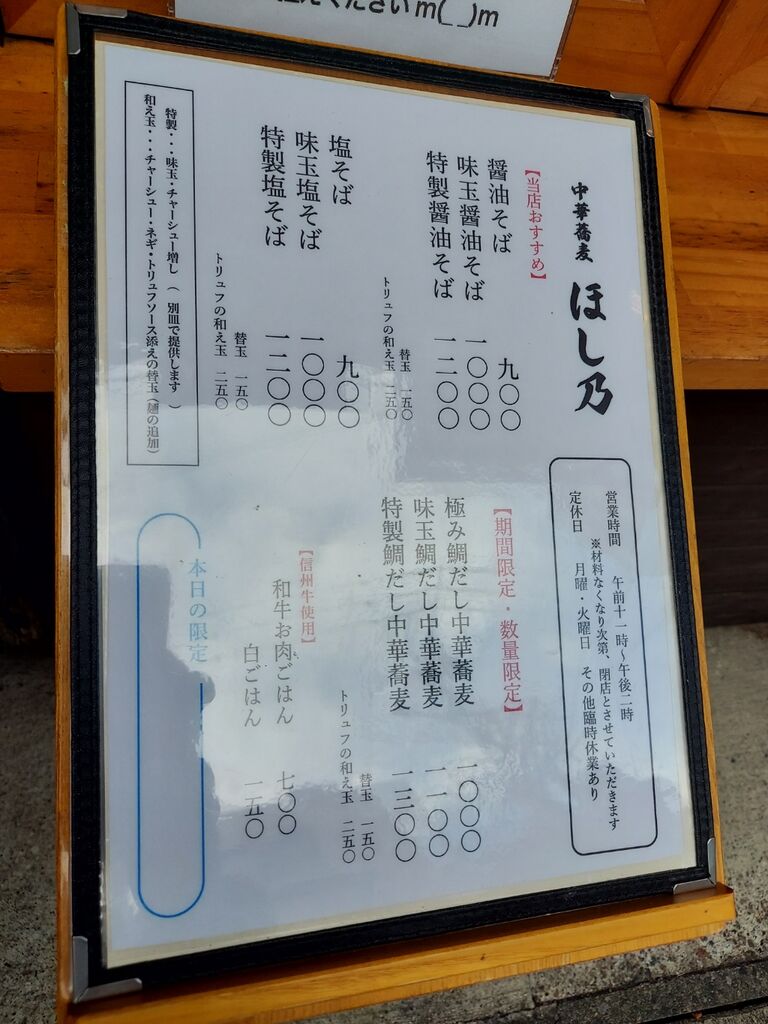 ださい m(_ _)m
中華蕎麦 ほし乃
【当店おすすめ】
醤油そば 九〇〇
味玉醤油そば 一〇〇〇
特製醤油そば 一二〇〇
替玉 一五〇
トリュフの和え玉 二五〇
塩そば 九〇〇
味玉塩そば 一〇〇〇
特製塩そば 一二〇〇
替玉 一五〇
トリュフの和え玉 二五〇
特製・・・味玉・チャーシュー増し ( 別皿で提供します )
和え玉・・・チャーシュー・ネギ・トリュフソース添えの替玉(麺の追加)
営業時間 午前十一時~午後二時
※材料なくなり次第、閉店とさせていただきます
定休日 月曜・火曜日 その他臨時休業あり
【期間限定・数量限定】
極み鯛だし中華蕎麦 一〇〇〇
味玉鯛だし中華蕎麦 一一〇〇
特製鯛だし中華蕎麦 一三〇〇
替玉 一五〇
トリュフの和え玉 二五〇
【信州牛使用】
和牛お肉ごはん 七〇〇
白ごはん 一五〇
本日の限定